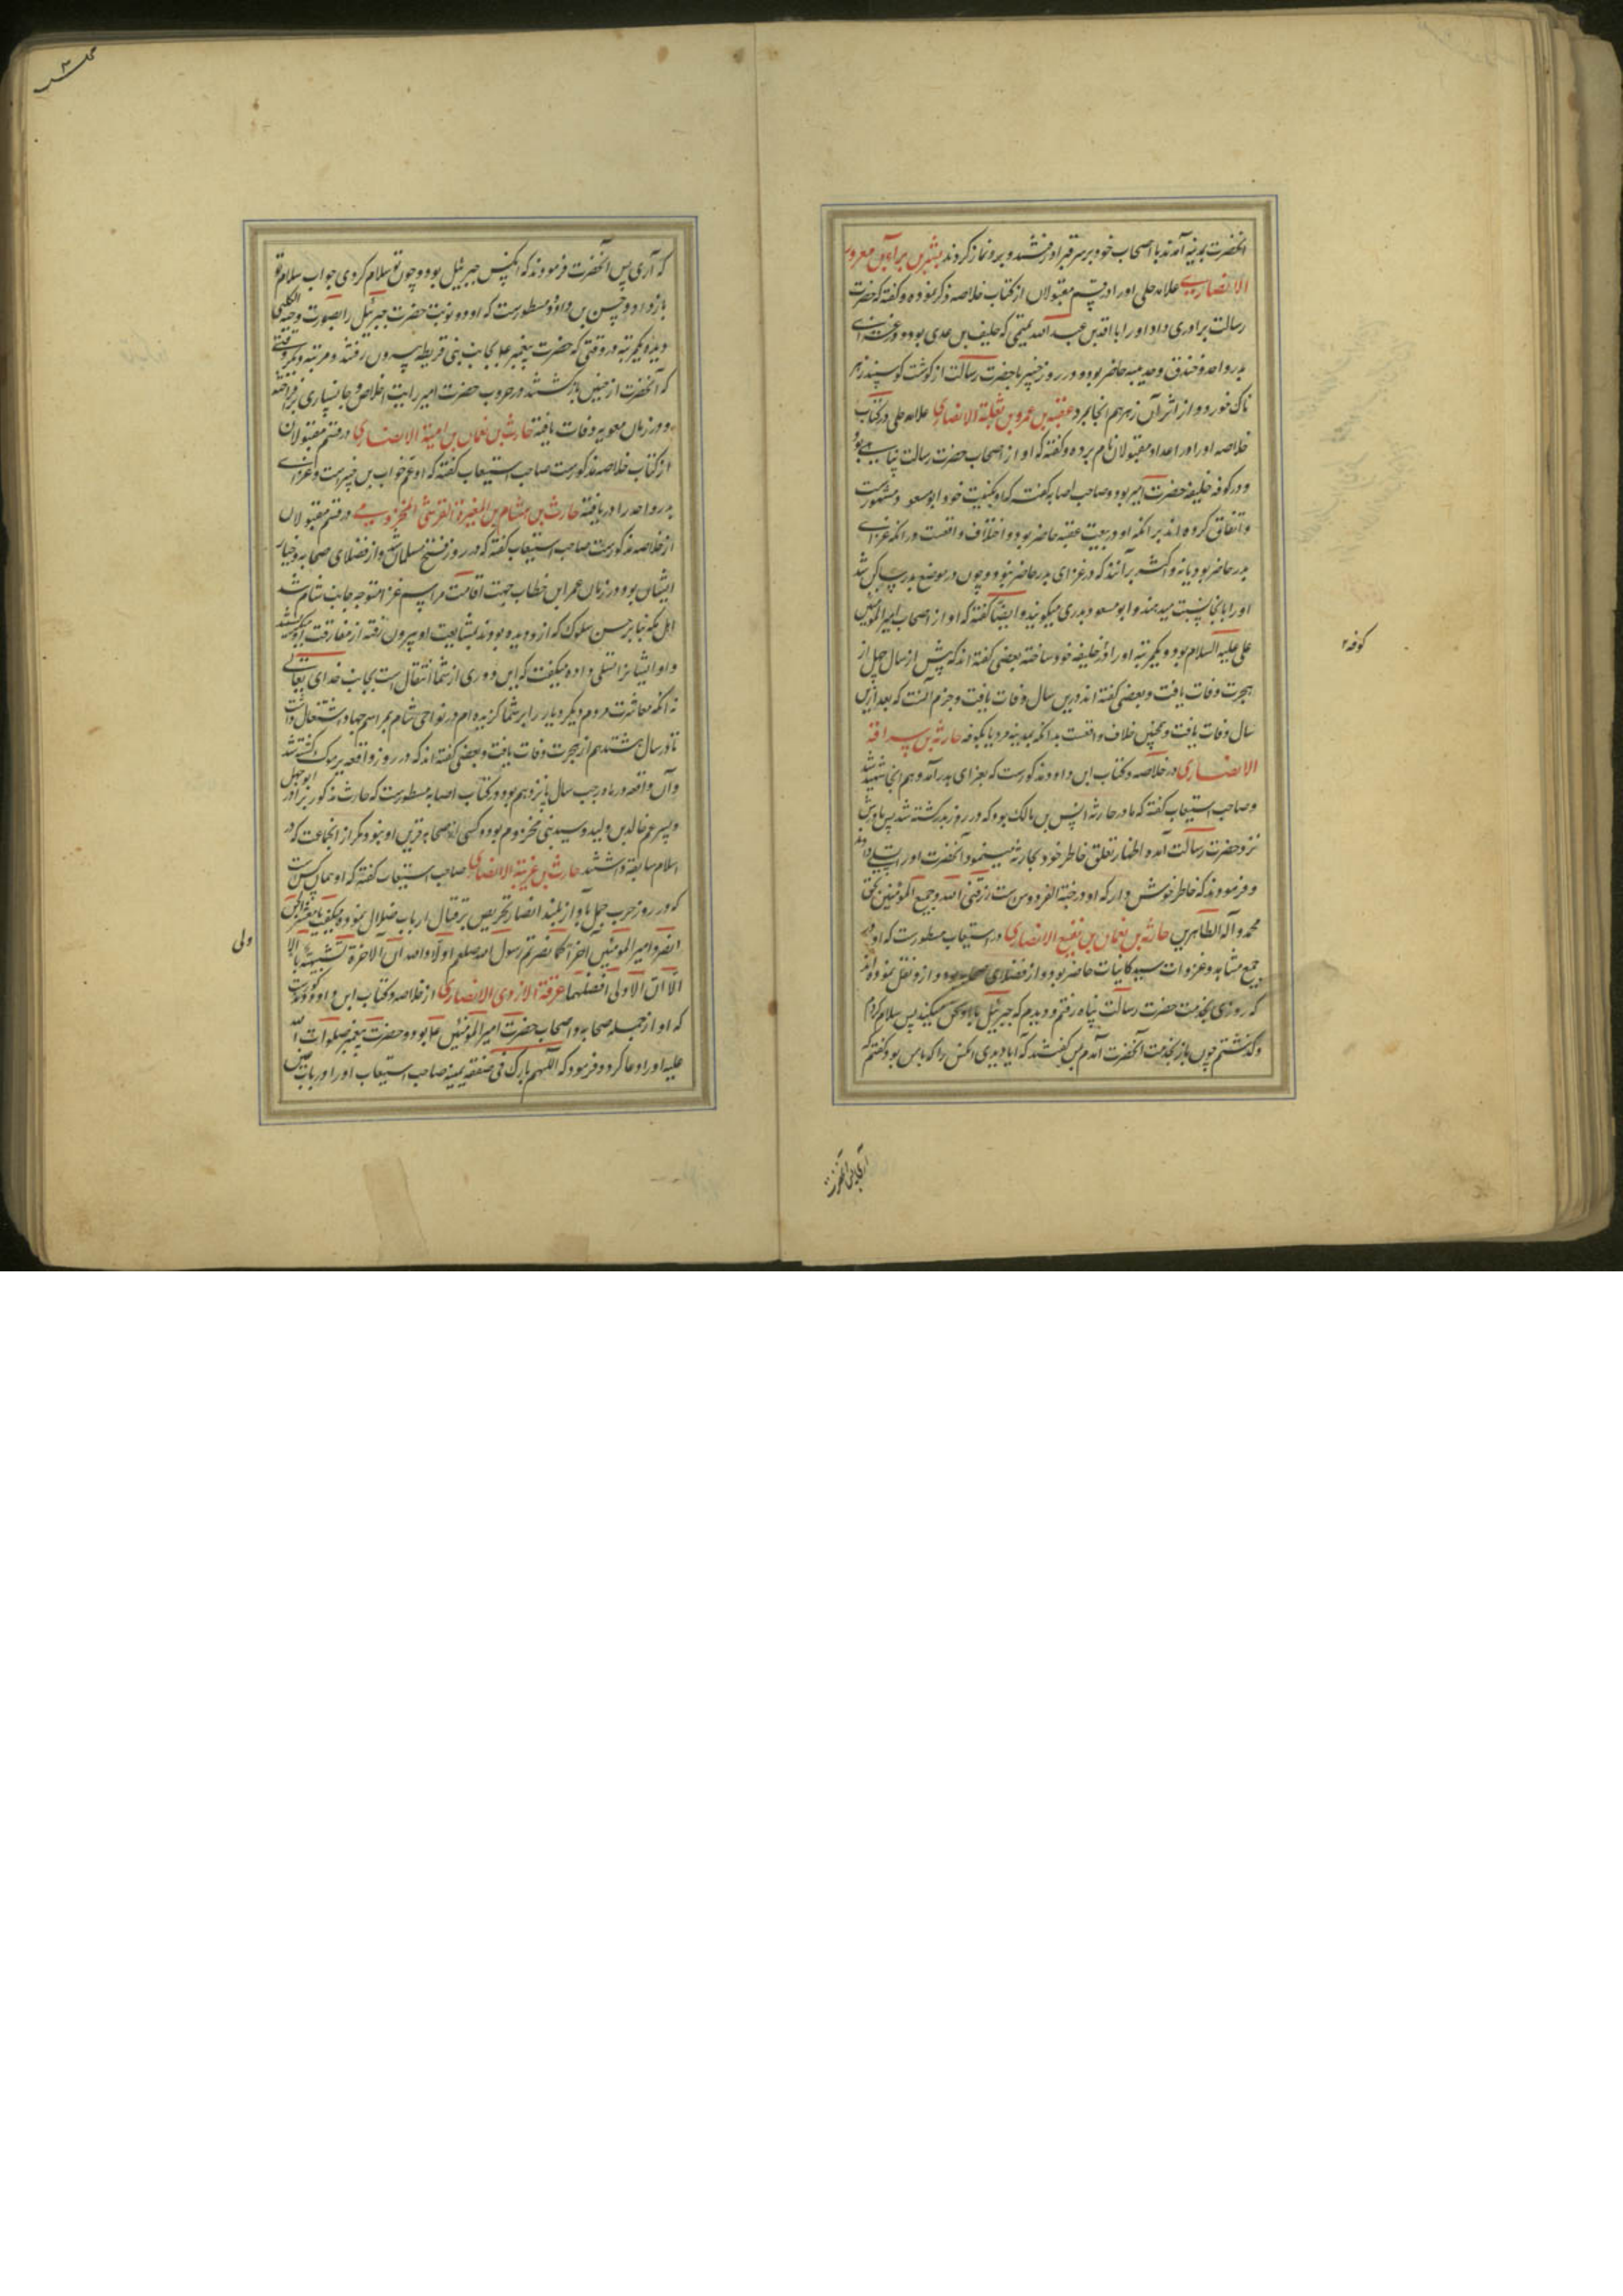 آنحضرت بمدینه آمدند با اصحاب خود بر سر قبر او رفتند و برو نماز کردند بشر بن براء بن معرور
الانصاری علامه حلی او را در قسم مقبولان از کتاب خلاصه ذکر نموده و گفته که حضرت
رسالت برادری داد او را با واقد بن عبد الله تمیمی که حلیف بن عدی بود و در غزای
بدر و احد و خندق و حدیبیه حاضر بود و در روز خیبر با حضرت رسالت از گوشت گوسپند زهر
ناک خورد و از اثر آن زهر هم انجا بمرد عقبه بن عمرو بن ثعلبة الانصاری علامه حلی در کتاب
خلاصه او را در اعداد مقبولان نام برده و گفته که او از اصحاب حضرت رسالت پناهی بود
و در کوفه خلیفه حضرت امیر بود و صاحب اصابه گفته که او بکنیت خود ابو مسعود مشهورست
و اتفاق کرده اند بر انکه او در بیعت عقبه حاضر بود و اختلاف واقعست در انکه غزای
بدر حاضر بود یا نه و اکثر برآنند که در غزای بدر حاضر نبود و چون در موضع بدر ساکن شد
او را بانجا نسبت میدهند و ابو مسعود بدری میگویند و ایضا گفته که او از اصحاب امیر المومنین
علی علیه السلام بود و یکمرتبه او را در خلیفه خود ساخته بعضی گفته اند که پیش از سال چهل از
هجرت وفات یافت و بعضی گفته اند در این سال وفات یافت و جزم آنست که بعد ازین
سال وفات یافت و همچنین خلاف واقعست بدانکه بمدینه مرد یا بکوفه حارثه بن سراقة
الانصاری در خلاصه و کتاب ابن داود مذکورست که بغزای بدر آمد و هم انجا شهید شد
و صاحب استیعاب گفته که مادر حارثه انس بن مالک بود که در روز بدر کشته شد پس مادرش
نزد حضرت رسالت آمده اظهار تعلق خاطر خود بحارثه مینمود آنحضرت او را تسلی دادند
و فرمودند که خاطر خوش دار که او در جنة الفردوس ست رزقنی الله و جمیع المومنین بحق
محمد و آله الطاهرین حارثه بن نعمان بن نفیع الانصاری در استیعاب مسطورست که او در
جمیع مشاهد و غزوات سید کاینات حاضر بود و از فضلای صحابه بود و ازو نقل نموده اند
که روزی بخدمت حضرت رسالت پناه رفتم و دیدم که جبرئیل با او سخن میکند پس سلام کردم
و گذشتم چون باز بخدمت آنحضرت آمدم پس گفتند که آیا دیدی آنکس را که با من بود گفتم که
کوفه
آری پس آنحضرت
که آری پس آنحضرت فرمودند که آنکس جبرئیل بود و چون تو سلام کردی جواب سلام تو
باز داد و حسن بن داود مسطورست که او دو نوبت حضرت جبرئیل را بصورت دحیه الکلبی
دید یکمرتبه در وقتی که حضرت پیغمبر بجانب بنی قریظه بیرون رفتند و مرتبه دیگر وقتی
که آنحضرت از حنین بازگشتند و در حروب حضرت امیر رایت اخلاص و جانسپاری برافراخته
و در زمان معویه وفات یافته حارث بن نعمان بن امیة الانصاری در قسم مقبولان
از کتاب خلاصه مذکورست صاحب استیعاب گفته که او عم خوات بن جبیرست و غزای
بدر و احد را دریافته حارث بن هشام بن المغیرة القرشی المخزومی در قسم مقبولان
از خلاصه مذکورست صاحب استیعاب گفته که در روز فتح مسلمان شد و از فضلای صحابه و خیار
ایشان بود و در زمان عمر ابن خطاب جهت اقامت مراسم غزا متوجه جانب شام شد
اهل مکه بنا بر حسن سلوک که ازو دیده بودند بمشایعت او بیرون رفته از مفارقت او میگریستند
و او ایشانرا تسلی داده میگفت که این دوری از شما انتقال است بجانب خدای تعالی
نه انکه معاشرت مردم دیگر دیار را بر شما گزیده ام در نواحی شام بمراسم جهاد اشتغال داشت
تا در سال هشتدهم از هجرت وفات یافت و بعضی گفته اند که در روز واقعه یرموک کشته شد
و آن واقعه در ماه رجب سال پانزدهم بود و در کتاب اصابه مسطورست که حارث مذکور برادر ابوجهل
و پسر عم خالد بن ولید و سید بنی مخزوم بود و کسی از صحابه قرین او نبود مگر از انجماعت که در
اسلام سابقه داشتند حارث بن غزیة الانصاری صاحب استیعاب گفته که او همان کس ست
که در روز حرب جمل بآواز بلند انصار تحریص بر قتال ارباب ضلال نموده میگفت یا معشر
انصروا امیر المومنین آخرا کما نصرتم رسول الله صلعم اولا و الله ان الآخرة لشبیهة بالاولی
الا ان الاولی افضلهما عرفة الازدی الانصاری از خلاصه و کتاب ابن داود مذکورست
که او از جمله صحابه و اصحاب حضرت امیر المومنین بود و حضرت پیغمبر صلوات الله
علیه او را دعا کرد و فرمود که اللهم بارک فی صفقه یمینه صاحب استیعاب او را در باب